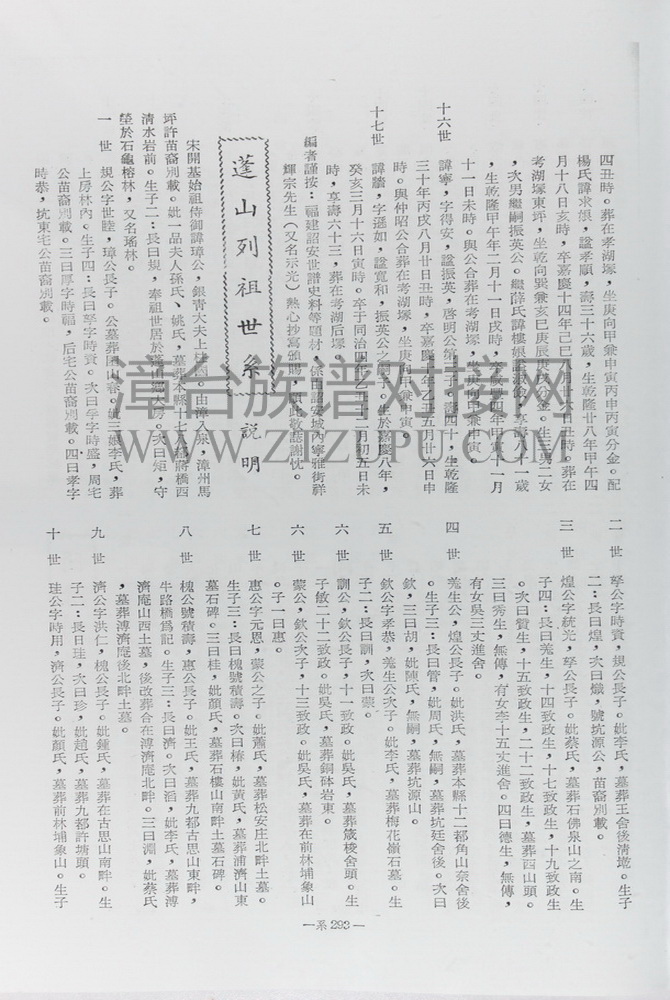 四丑時。葬在孝湖塚，坐庚向甲兼申寅丙申丙寅分金。配
楊氏諱求娘，諡孝順，壽三十六歲，生乾隆廿八年甲午四
月十八日亥時，卒嘉慶十四年己巳月廿六日丑時。葬在
考湖塚東坪，坐乾向巽兼亥巳庚辰庚戌分金。生三男二女
，次男繼嗣振英公。繼薛氏諱樓娘，享壽八十一歲
，生乾隆甲午年二月十一日戌時，卒咸豐四年甲寅十一月
十一日未時。與公合葬在考湖塚，坐庚向甲兼申寅。
十六世 諱寧，字得安，諡振英，啓明公第 子，壽四十，生乾隆
三十年丙戌八月廿日丑時，卒嘉慶 年乙丑五月廿六日申
時。與仲昭公合葬在考湖塚，坐庚向甲兼申寅。
十七世 諱牆，字遜如，諡寬和，振英公之 子。生於嘉慶八年，
癸亥三月十六日寅時。卒于同治四年乙丑十二月初五日未
時，享壽六十三，葬在考湖后塚。
編者謹按：福建詔安世譜史料等題材，係由詔安城內寧雅街祥
輝宗先生（又名示光）熱心抄寫頒賜，謹此敬誌謝忱。
蓬山列祖世系 說明
宋開基始祖侍御諱璋公，銀青大夫上柱國。由漳入泉，漳州馬
坪許苗裔別載。妣一品夫人孫氏、姚氏，墓葬本縣十七都蔣橋西
清水岩前。生子二：長曰規，奉祖世居於蓬山鄉大房。次曰矩，守
塋於石龜榕林，又名瑤林。
一世 規公字世睦，璋公長子。公墓葬囷山春。妣三娘李氏，葬
上房林內。生子四：長曰孥字時賁。次曰孚字時盛，周宅
公苗裔別載。三曰厚字時福，后宅公苗裔別載。四曰孝字
時恭，坑東宅公苗裔別載。
二世 孥公字時賁，規公長子。妣李氏，墓葬王舍後清墘。生子
二：長曰煌，次曰熾，號坑源公，苗裔別載。
三世 煌公字統光，孥公長子。妣蔡氏，墓葬石佛泉山之南。生
子四：長曰羌生，十四致政生，十七致政生，十九致政生
。次曰贊生，十五致政生，二十二致政生，墓葬西山頭。
三曰秀生，無傳，有女李十五丈進舍。四曰德生，無傳，
有女吳三丈進舍。
四世 羌生公，煌公長子。妣洪氏，墓葬本縣十二都角山奈舍後
。生子三：長曰管，妣周氏，無嗣，墓葬坑廷舍後。次曰
欽，三曰胡，妣陳氏，無嗣，墓葬坑源山。
五世 欽公字孝恭，羌生公次子。妣李氏，墓葬梅花嶺石墓。生
子二：長曰訓，次曰蒙。
六世 訓公，欽公長子，十一致政。妣吳氏，墓葬箴梭舍頭。生
子敏二十二致政。妣吳氏，墓葬銅砵岩東。
六世 蒙公，欽公次子，十三致政。妣吳氏，墓葬在前林埔象山
。子一曰惠。
七世 惠公字元恩，蒙公之子。妣蕭氏，墓葬松安庄北畔土墓。
生子三：長曰槐號積壽。次曰椿，妣黃氏，墓葬浦濟山東
墓石碑。三曰桂，妣顏氏，墓葬石樓山南畔土墓石碑。
八世 槐公號積壽，惠公長子。妣王氏，墓葬九都古思山東畔，
牛路橋爲記。生子三：長曰濟。次曰滔，妣李氏，墓葬溥
濟庵山西土墓，後改葬合在溥濟庵北畔。三曰淵，妣蔡氏
，墓葬溥濟庵後北畔土墓。
九世 濟公字洪仁，槐公長子。妣鍾氏，墓葬在古思山南畔。生
子二：長曰珪，次曰珍，妣趙氏，墓葬九都許塘頭。
十世 珪公字時用，濟公長子。妣顏氏，墓葬前林埔象山。生子
—系293—
漳台族谱对接网
WWW.ZTZUPU.COM